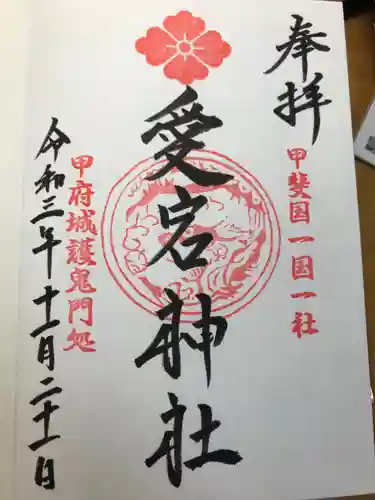 奉拝
甲斐国一国一社
愛宕神社
甲府城護鬼門処
令和三年十一月二十一日